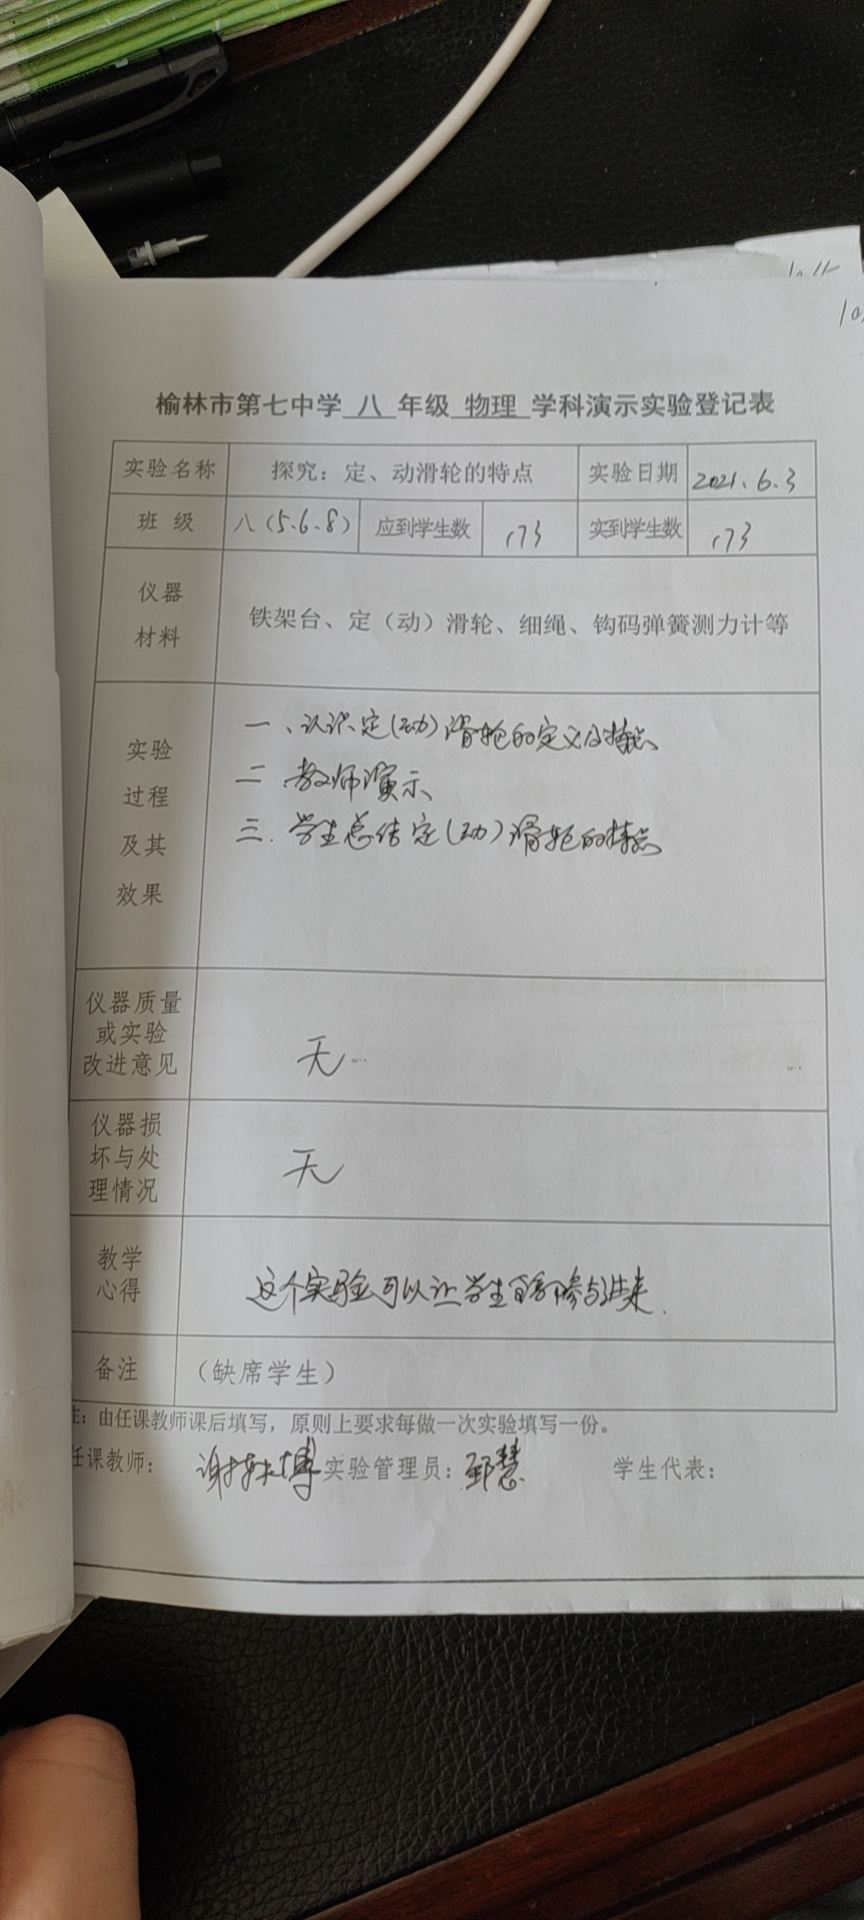 榆林市第七中学 八 年级 物理 学科演示实验登记表
实验名称 探究：定、动滑轮的特点 实验日期 2021.6.3
班 级 八（5.6.8） 应到学生数 173 实到学生数 173
仪器
材料
铁架台、定（动）滑轮、细绳、钩码弹簧测力计等
实验
过程
及其
效果
一、认识定（动）滑轮的定义及特点
二 教师演示
三. 学生总结定（动）滑轮的特点
仪器质量
或实验
改进意见
无
仪器损
坏与处
理情况
无
教学
心得
这个实验可以让学生参与进来.
备注 （缺席学生）
注：由任课教师课后填写，原则上要求每做一次实验填写一份。
任课教师： 谢 博 实验管理员： 慧 学生代表：